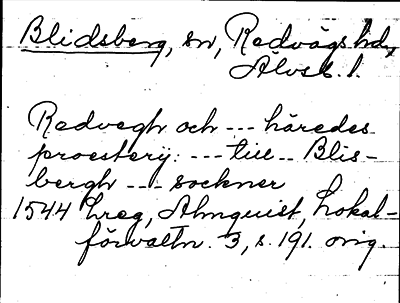 Blidsberg, sn, Redvägs hd,
Älvsb. l.
Redvegh och --- häredes
proestery: --- till -- Blis-
bergh --- sockner
1544 Lreg, Almquist, Lokal-
förvaltn. 3, s. 191. orig.